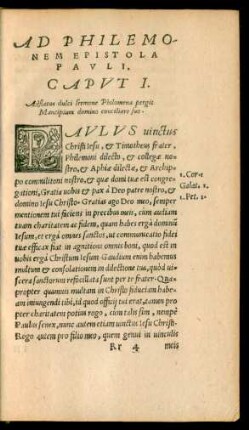 AD PHILEMO-
NEM EPISTOLA
PAVLI.
CAPVT I.
Affatus dulci sermone Philemona pergit
Mancipium domino conciliare suo.
PAVLVS uinctus
Christi Iesu, & Timotheus frater,
Philemoni dilecto, & collegæ no-
stro, & Aphiæ dilectæ, & Archip
po commilitoni nostro, & quæ domi tuæ est congre-
gationi, Gratia uobis & pax à Deo patre nostro, &
domino Iesu Christo. Gratias ago Deo meo, semper
mentionem tui faciens in precibus meis, cum audiam
tuam charitatem ac fidem, quam habes ergà dominū
Iesum, et ergà omnes sanctos, ut communicatio fidei
tuæ efficax fiat in agnitione omnis boni, quod est in
uobis ergà Christum Iesum. Gaudium enim habemus
multum & consolationem in dilectione tua, quòd ui-
scera sanctorum refocillata sunt per te frater. Qua-
propter quamuis multam in Christo fiduciam habe-
am iniungendi tibi, id quod officij tui erat, tamen pro
pter charitatem potius rogo, cum talis sim, nempe
Paulus senex, nunc autem etiam uinctus Iesu Christi.
Rogo autem pro filio meo, quem genui in uinculis
1. Cor.
Galat. 1.
1. Pet. 1.
Rr 4 meis